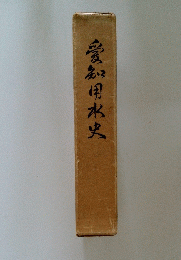 愛知用水史